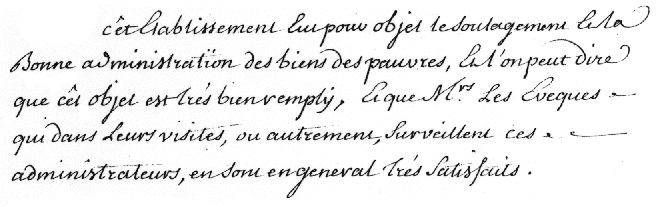 cêt Etablissement Eut pour objet le soulagement et la
Bonne administration des biens des pauvres, et l'on peut dire
que cêt objet est trés bien remply, et que M.rs Les Eveques
qui dans Leurs visites, ou autrement, surveillent ces
administrateurs, en sont en general trés satisfaits.